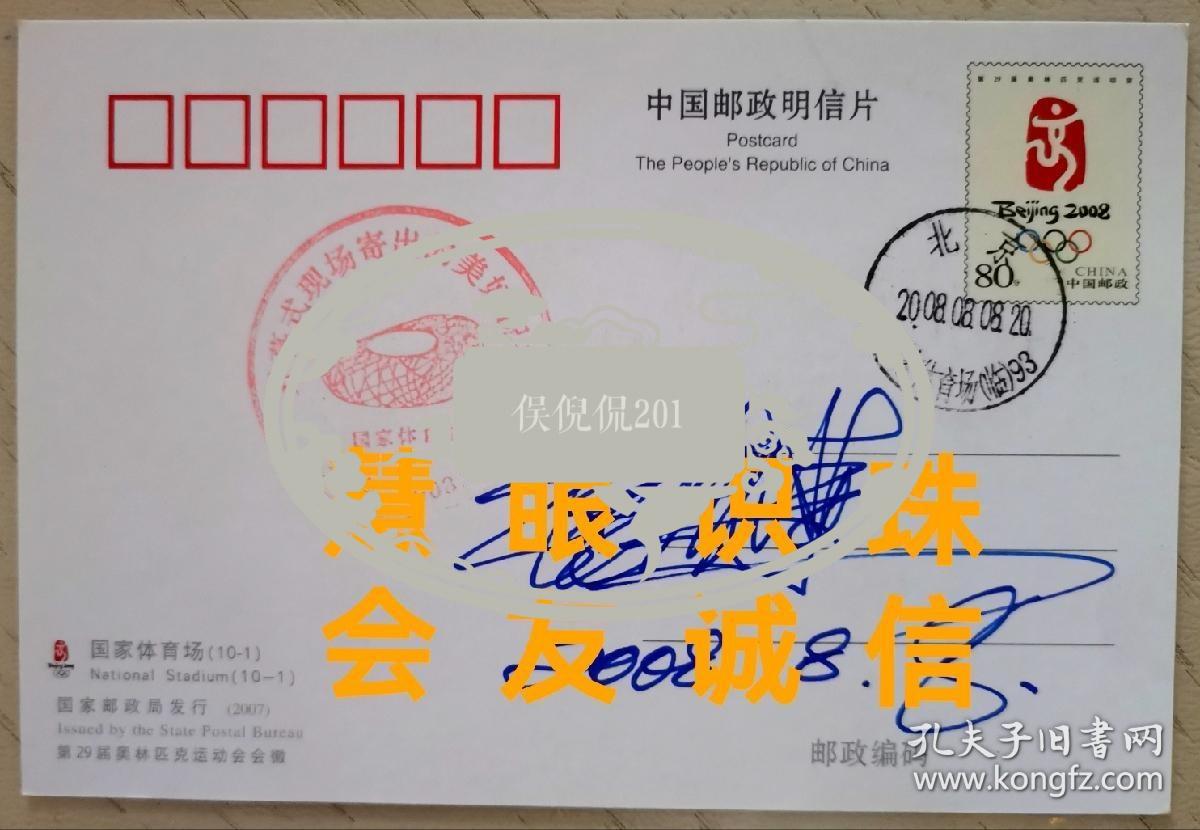 中国邮政明信片
Postcard
The People's Republic of China
第29届奥林匹克运动会
Beijing 2008
80分
CHINA
中国邮政
北京
2008.08.08.20
育场(临)93
式现场寄出
美
国家体
俣倪侃201
慧眼识珠
会友诚信
2008.8.8.
国家体育场(10-1)
National Stadium(10-1)
国家邮政局发行 (2007)
Issued by the State Postal Bureau
第29届奥林匹克运动会会徽
邮政编码
孔夫子旧书网
www.kongfz.com